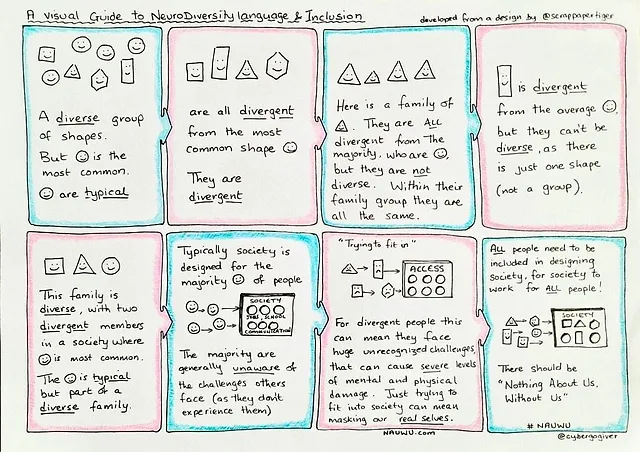 A visual Guide to NeuroDiversity language & Inclusion
developed from a design by @scrappapertiger
A diverse group
of shapes.
But is the
most common.
are typical
are all divergent
from the most
common shape
They are
divergent
Here is a family of
. They are ALL
divergent from the
majority, who are ,
but they are not
diverse. Within their
family group they are
all the same.
is divergent
from the average ,
but they can't be
diverse, as there
is just one shape
(not a group).
This family is
diverse, with two
divergent members
in a society where
is most common.
The is typical
but part of a
diverse family.
Typically society is
designed for the
majority of people
SOCIETY
JOBS, SCHOOL
COMMUNICATION
The majority are
generally unaware of
the challenges others
face (as they don't
experience them)
"Trying to fit in"
ACCESS
For divergent people this
can mean they face
huge unrecognized challenges,
that can cause severe levels
of mental and physical
damage. Just trying to
fit into society can mean
masking our real selves.
NAUWU.com
ALL people need to be
included in designing
society, for society to
work for ALL people!
SOCIETY
There should be
"Nothing About Us,
Without Us"
# NAUWU
@cybergogiver